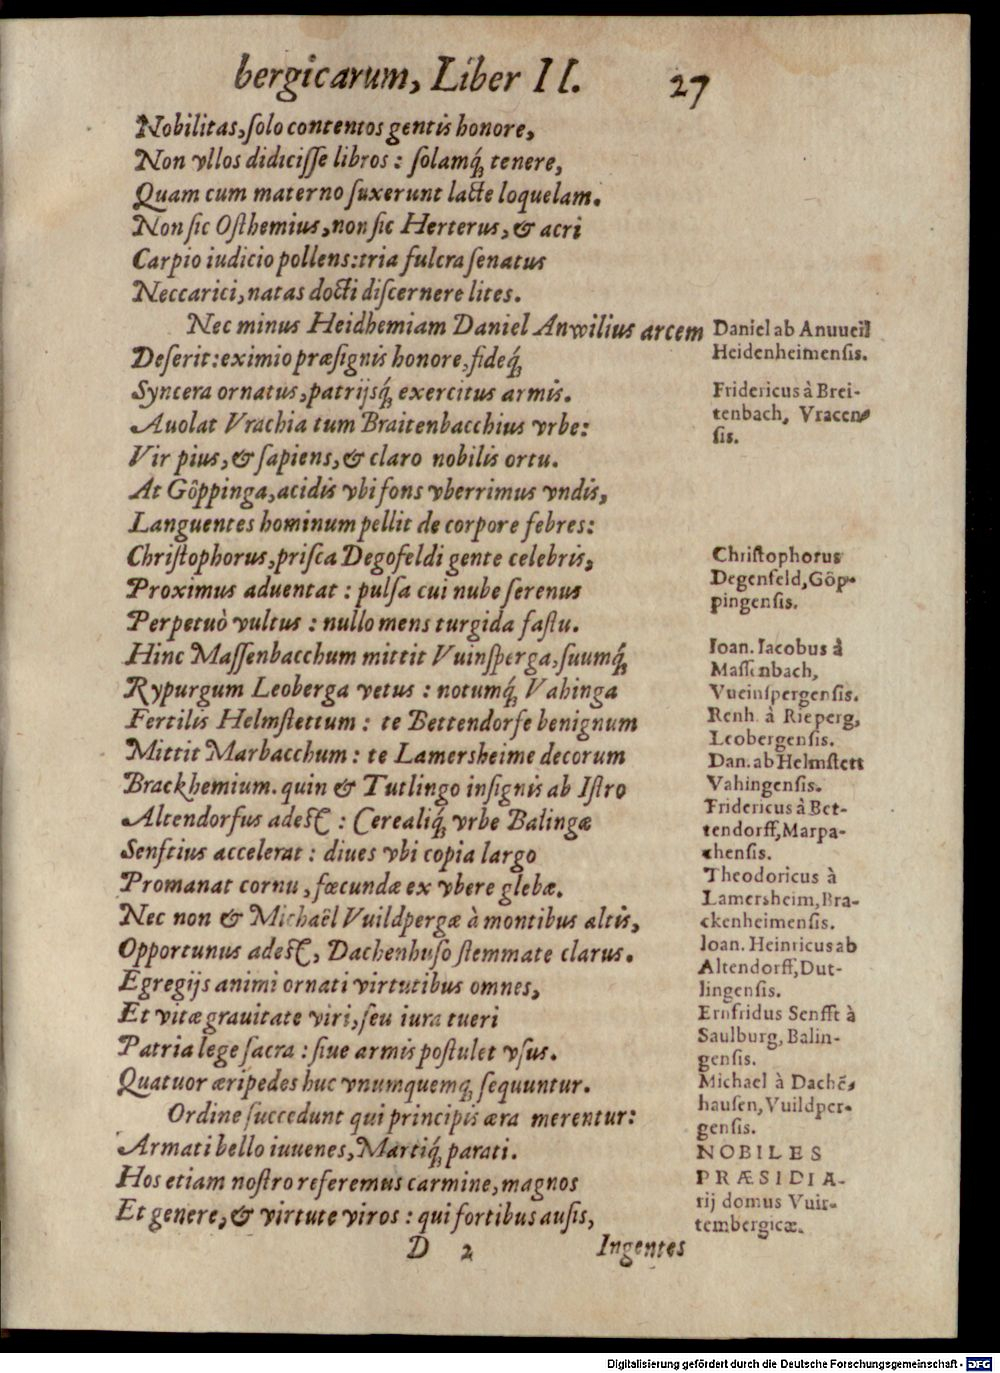 bergicarum, Liber II. 27
Nobilitas, ſolo contentos gentis honore,
Non vllos didiciſſe libros: ſolamq́; tenere,
Quam cum materno ſuxerunt lacte loquelam.
Non ſic Oſthemius, non ſic Herterus, & acri
Carpio iudicio pollens: tria fulcra ſenatus
Neccarici, natas docti diſcernere lites.
Nec minus Heidhemiam Daniel Anwilius arcem
Deſerit: eximio præſignis honore, fideq́;
Syncera ornatus, patrijsq́; exercitus armis.
Auolat Vrachia tum Braitenbacchius vrbe:
Vir pius, & ſapiens, & claro nobilis ortu.
At Gôppinga, acidis vbi fons vberrimus vndis,
Languentes hominum pellit de corpore febres:
Chriſtophorus, priſca Degofeldi gente celebris,
Proximus aduentat: pulſa cui nube ſerenus
Perpetuò vultus: nullo mens turgida faſtu.
Hinc Maſſenbacchum mittit Vuinſperga, ſuumq́;
Rypurgum Leoberga vetus: notumq́; Vahinga
Fertilis Helmſtettum: te Bettendorfe benignum
Mittit Marbacchum: te Lamersheime decorum
Brackhemium. quin & Tutlingo inſignis ab Iſtro
Altendorfus adeſt: Cerealiq́; vrbe Balingæ
Senftius accelerat: diues vbi copia largo
Promanat cornu, fœcundæ ex vbere glebæ.
Nec non & Michaël Vuildpergæ à montibus altis,
Opportunus adeſt, Dachenhuſo ſtemmate clarus.
Egregijs animi ornati virtutibus omnes,
Et vitæ grauitate viri, ſeu iura tueri
Patria lege ſacra: ſiue armis poſtulet vſus.
Quatuor æripedes huc vnumquemq; ſequuntur.
Ordine ſuccedunt qui principis æra merentur:
Armati bello iuuenes, Martiq́; parati.
Hos etiam noſtro referemus carmine, magnos
Et genere, & virtute viros: qui fortibus auſis,
D 2 Ingentes
Daniel ab Anuueil
Heidenheimenſis.
Fridericus à Brei-
tenbach, Vracen-
ſis.
Chriſtophorus
Degenfeld, Gôp-
pingenſis.
Ioan. Iacobus à
Maſſenbach,
Vueinſpergenſis.
Renh. à Rieperg,
Leobergenſis.
Dan. ab Helmſtett
Vahingenſis.
Fridericus à Bet-
tendorff, Marpa-
chenſis.
Theodoricus à
Lamersheim, Bra-
ckenheimenſis.
Ioan. Heinricus ab
Altendorff, Dut-
lingenſis.
Ernfridus Senfft à
Saulburg, Balin-
genſis.
Michael à Dachē-
hauſen, Vuildper-
genſis.
NOBILES
PRÆSIDIA-
rij domus Vuir-
tembergicæ.
Digitalisierung gefördert durch die Deutsche Forschungsgemeinschaft - DFG